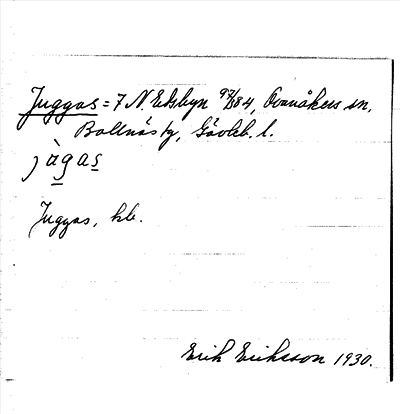 Juggas = 7 N. Edsbyn 97/184, Ovanåkers sn,
Bollnäs tg, Gävleb. l.
jùgas
Juggas, hb.
Erik Eriksson 1930.